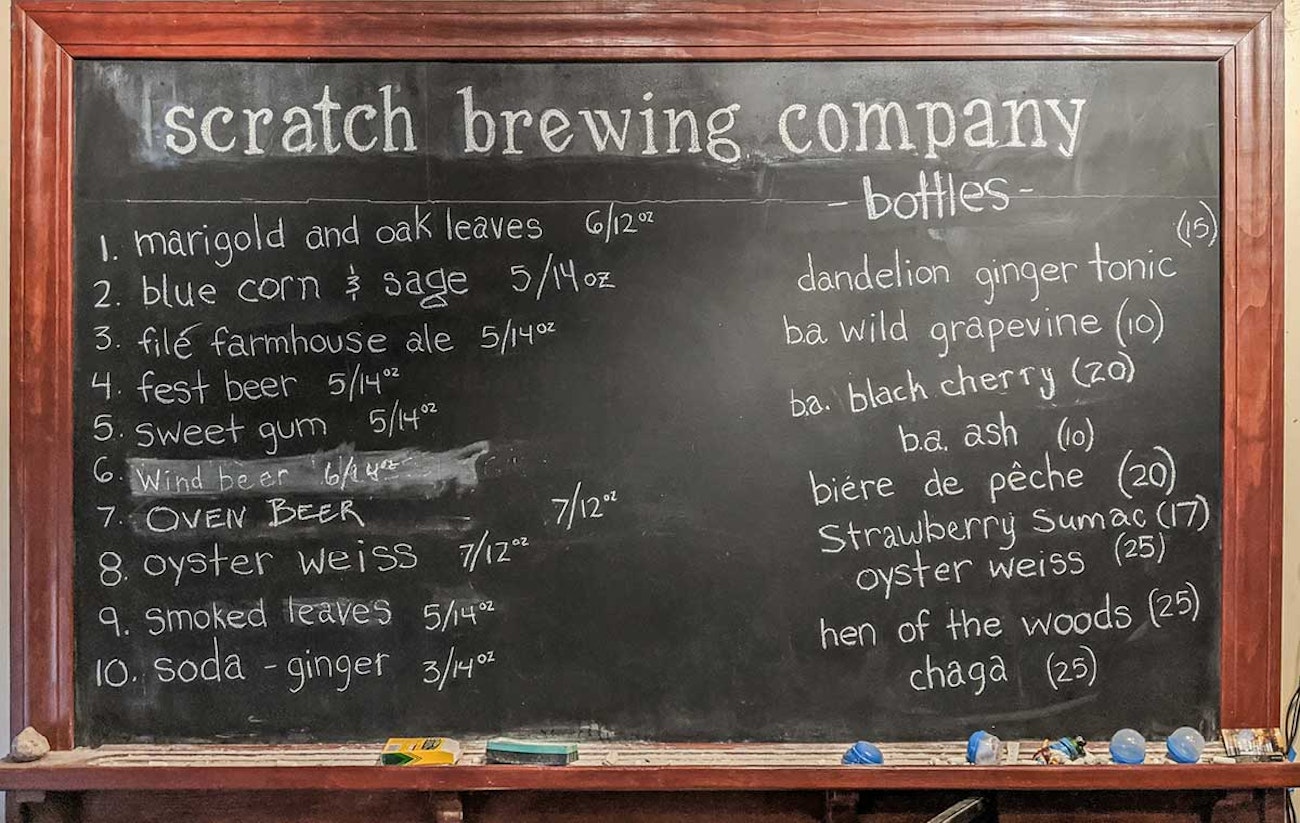 scratch brewing company
1. marigold and oak leaves 6/12oz
2. blue corn & sage 5/14oz
3. filé farmhouse ale 5/14oz
4. fest beer 5/14oz
5. sweet gum 5/14oz
6. Wind beer 6/14oz
7. OVEN BEER 7/12oz
8. oyster weiss 7/12oz
9. smoked leaves 5/14oz
10. soda - ginger 3/14oz
- bottles -
dandelion ginger tonic (15)
b.a wild grapevine (10)
b.a. black cherry (20)
b.a. ash (10)
biére de pêche (20)
Strawberry Sumac (17)
oyster weiss (25)
hen of the woods (25)
chaga (25)